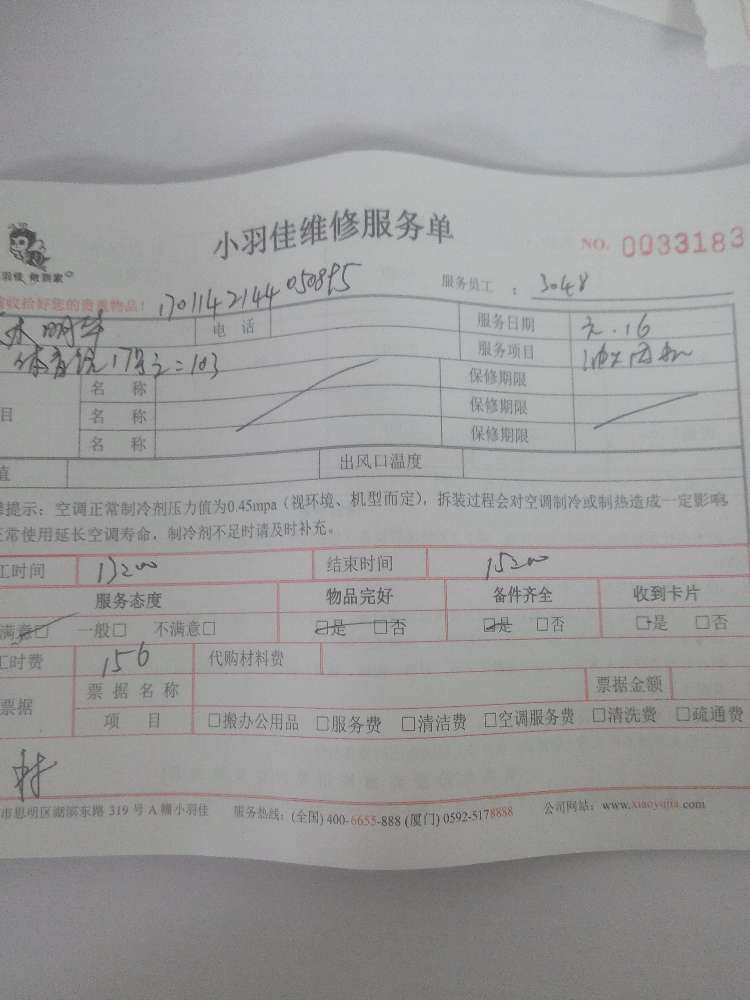 小羽佳维修服务单
NO. 0033183
羽佳 做到家
收拾好您的贵重物品! 1701142144050895
服务员工 : 3048
电 话 服务日期 元.16
体育院17号之二103 服务项目
名 称 保修期限
目 名 称 保修期限
名 称 保修期限
值 出风口温度
提示: 空调正常制冷剂压力值为0.45mpa (视环境、机型而定), 拆装过程会对空调制冷或制热造成一定影响,
正常使用延长空调寿命, 制冷剂不足时请及时补充。
工时间 13200 结束时间 15200
服务态度 物品完好 备件齐全 收到卡片
满意□ 一般□ 不满意□ □是 □否 □是 □否 □是 □否
工时费 156 代购材料费
票据 票 据 名 称 票据金额
项 目 □搬办公用品 □服务费 □清洁费 □空调服务费 □清洗费 □疏通费
市思明区湖滨东路 319 号 A 幢小羽佳 服务热线: (全国) 400-6655-888 (厦门) 0592-5178888 公司网站: www.xiaoyujia.com